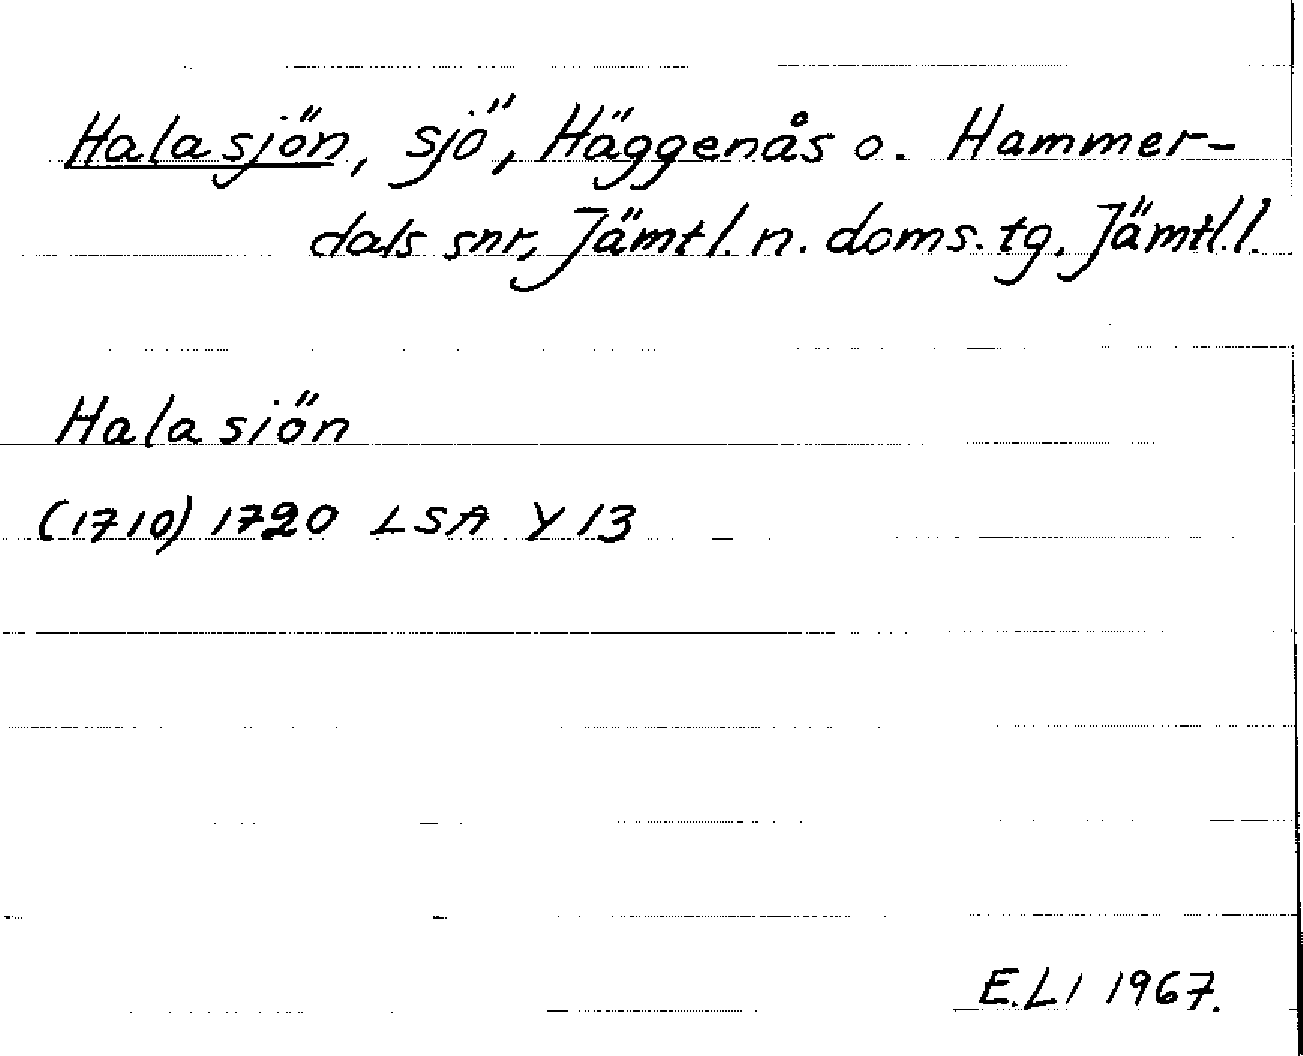 Halasjön, sjö, Häggenås o. Hammer-
dals snr, Jämtl. n. doms. tg, Jämtl. l.
Halasiön
(1710) 1720 LSA Y 13
E.LI 1967.